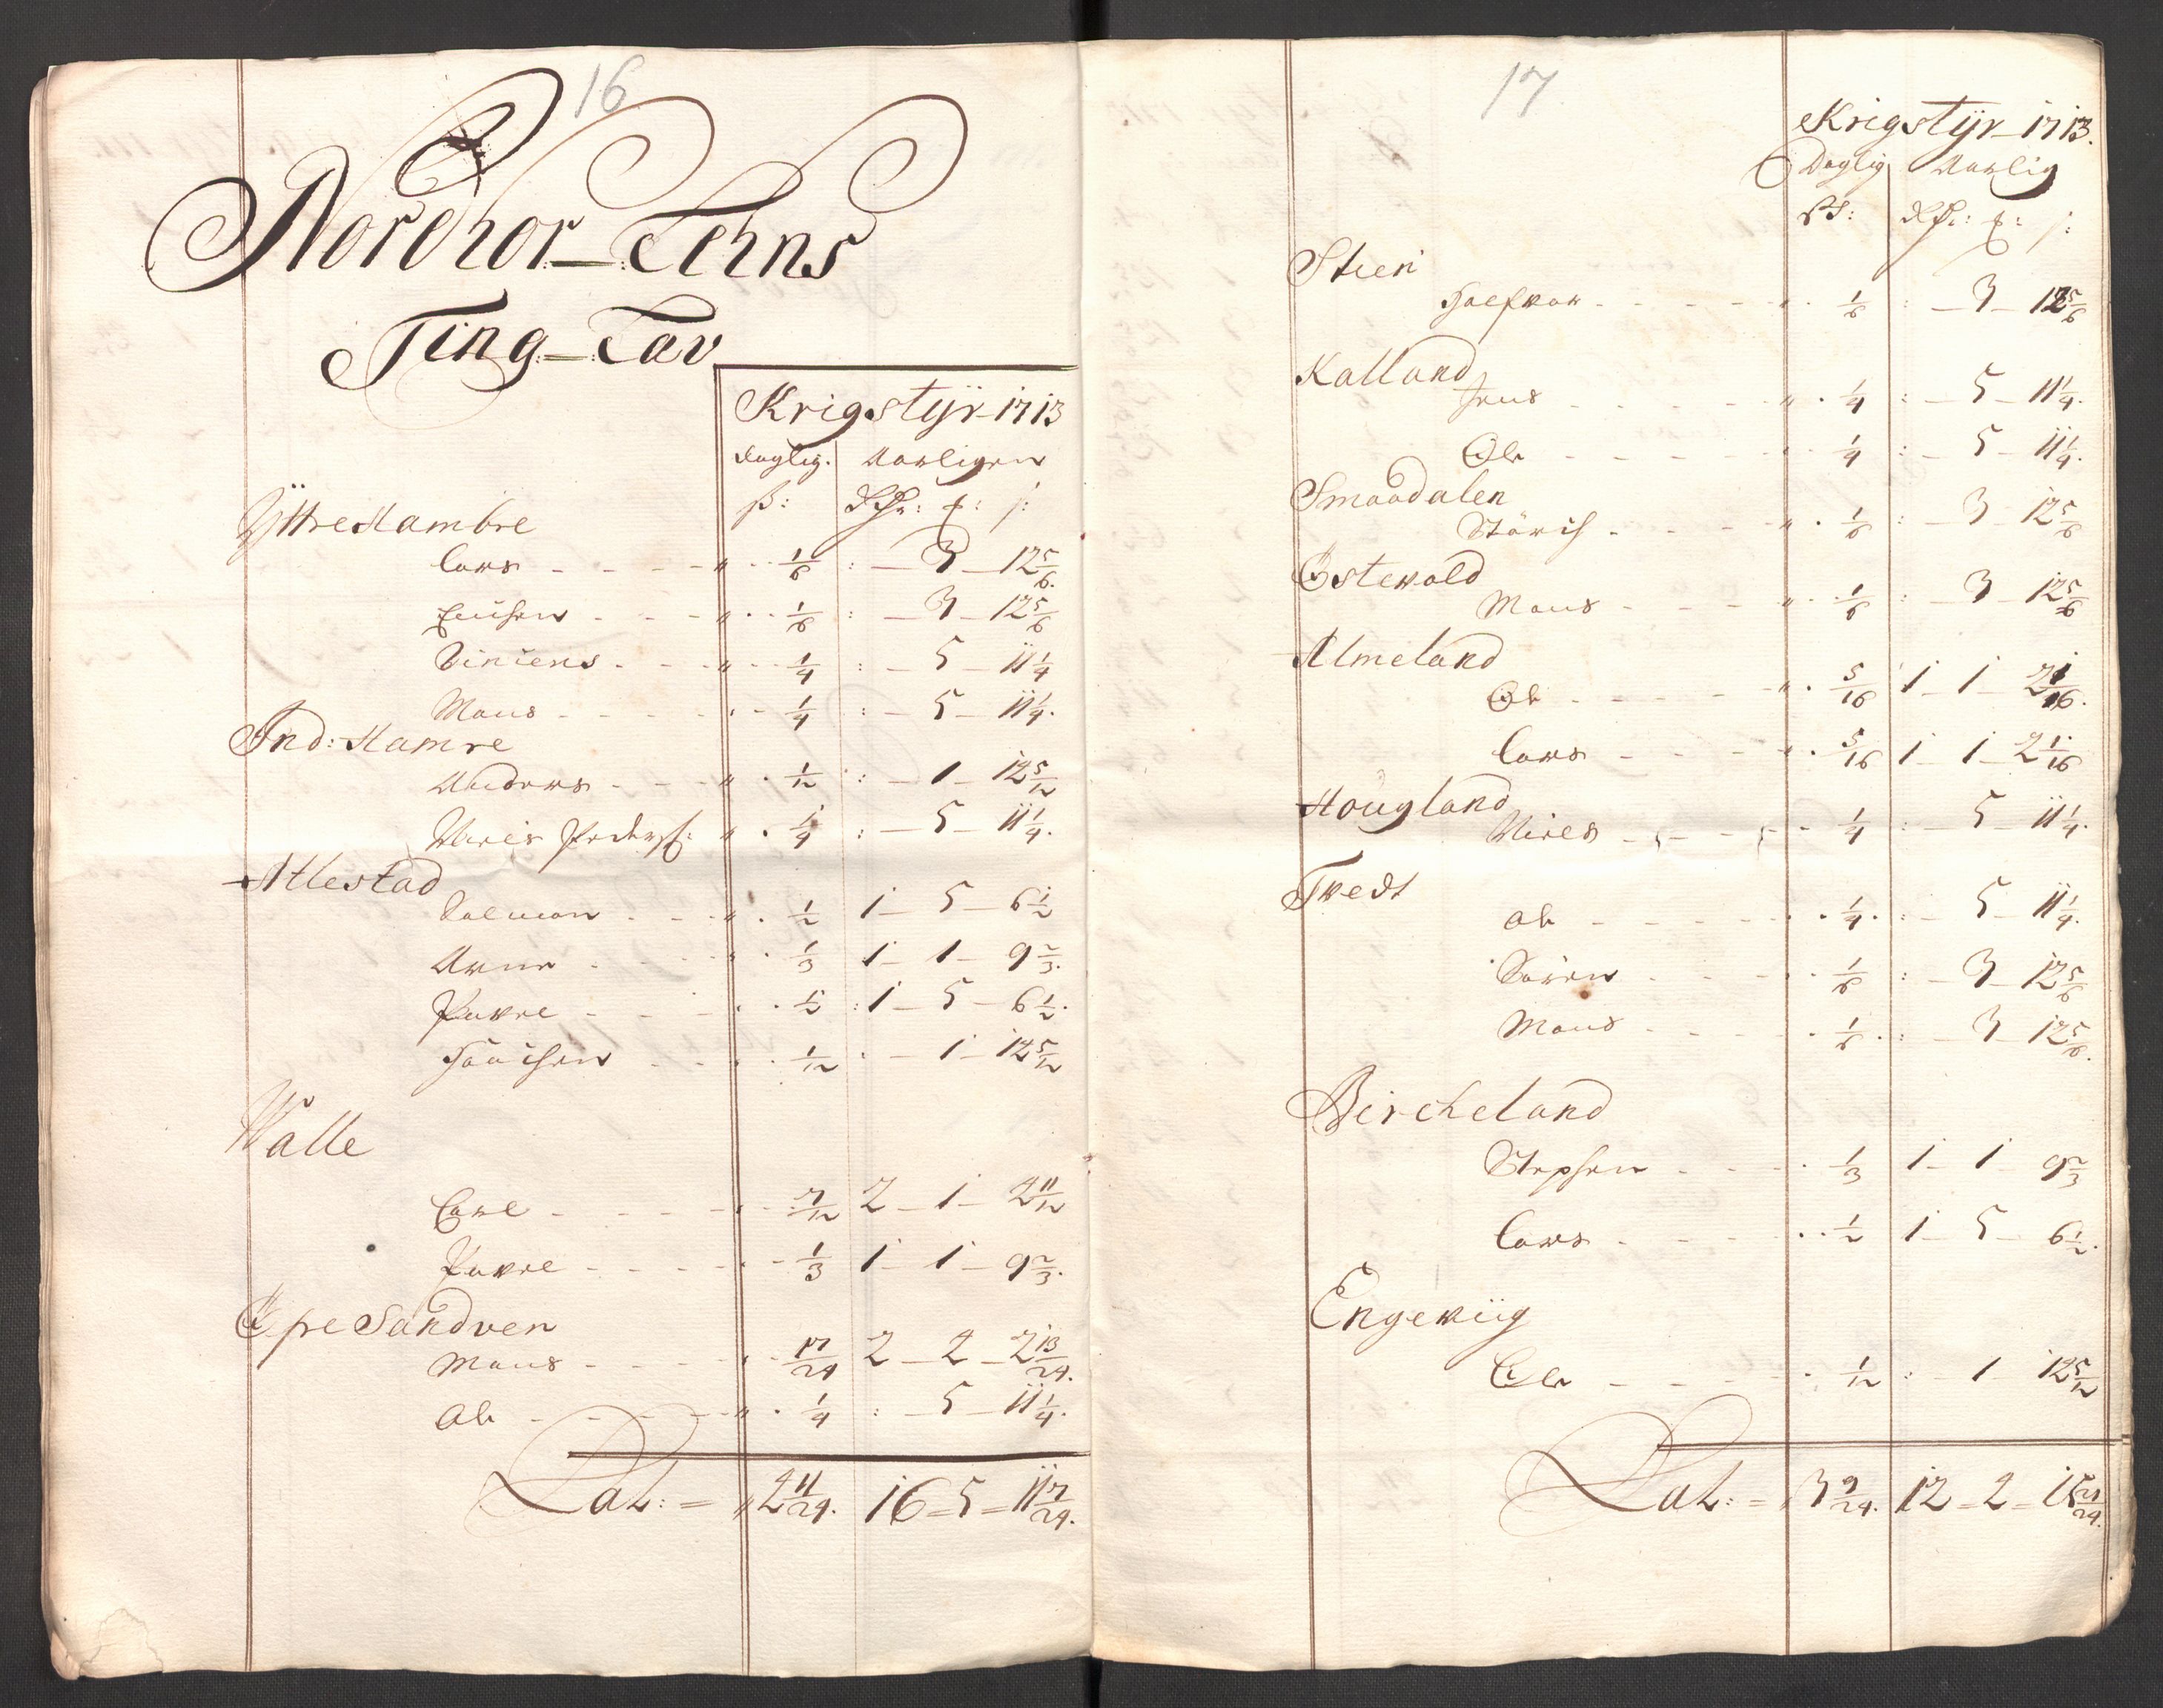 16
Nordhor-Lehns
Ting-Lav
Krigstÿr 1713
daglig. Aarligen
ß: Rdr: ₰: ß:
Ÿttre Hambre
Lars - - - - " - 1/6 : - 3 - 12 5/6.
- - - " - 1/6 : - 3 - 12 5/6
- - - " - 1/4 : - 5 - 11 1/4
Mons - - - - 1/4 : - 5 - 11 1/4.
Ind: Hamre
Anders - - - " . 1/12 : - 1 - 12 5/12
Niels Peders: " . 1/4 : - 5 - 11 1/4.
Allestad
Salmon - - - " . 1/2 1 - 5 - 6 1/2
Arne - - - . 1/3 1 - 1 - 9 2/3.
Povel - - - . 1/2 : 1 - 5 - 6 1/2.
- - . 1/12 . - 1 - 12 5/12
Walle
Carl - - - - . 7/12 2 - 1 - 2 11/12
Povel - - - - 1/3 1 - 1 - 9 2/3.
Øfre Sandven
Mons - - - . 17/24 2 - 2 - 2 13/24.
Ole - - - - " . 1/4 : - 5 - 11 1/4.
Lat: = " 4 11/24. 16 - 5 - 11 7/24.
17
Krigstÿr 1713.
Daglig Aarlig
ß: Rdr: ₰: ß:
Stien
- - - - " . 1/6 : - 3 - 12 5/6
Kalland
Jens - - - - " . 1/4 : - 5 - 11 1/4.
Ole - - - - - 1/4 : - 5 - 11 1/4.
Smaadalen
- - - " . 1/6 : - 3 - 12 5/6
Østevold
Mons - - - " . 1/6 : - 3 - 12 5/6
Almeland
Ole - - - - " . 5/16 1 - 1 - 2 1/16.
Lars - - - - . 5/16 1 - 1 - 2 1/16
Hougland
Niels - - - - 1/4 : - 5 - 11 1/4.
Tvedt
Ole - - - - . 1/4. : - 5 - 11 1/4.
Søren - - - . 1/6 : - 3 - 12 5/6
Mons - - - . 1/6 . : - 3 - 12 5/6.
Bircheland
Stephen - - - . 1/3 1 - 1 9 2/3
Lars - - - . . 1/2 1 - 5 - 6 1/2.
Engeviig
Ole - - - - . 1/12 : - 1 12 5/12
Lat: = 3 9/24. 12 - 2 - 15 21/24.